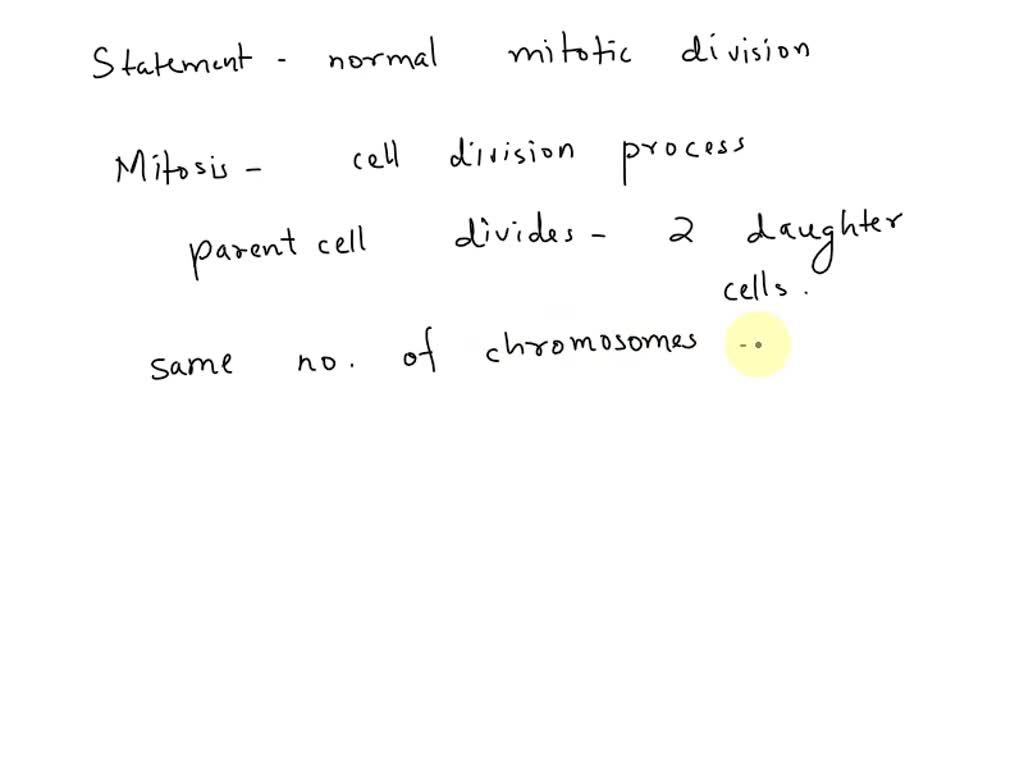 Statement - normal mitotic division
Mitosis - cell division process
parent cell divides - 2 daughter
cells.
same no. of chromosomes -